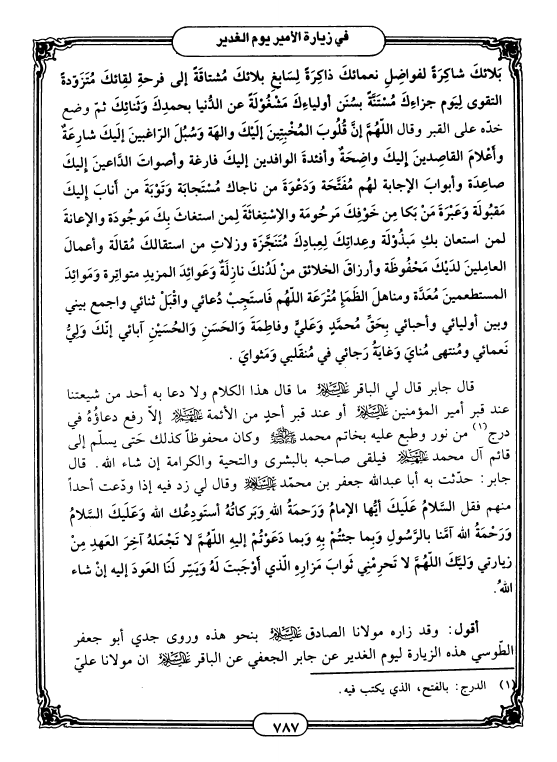 في زيارة الأمير يوم الغدير
بَلائكَ شاكِرَةً لفواضِلِ نعمائكَ ذاكِرَةً لِسَابِغِ بلائكَ مُشتاقَةً إلى فرحةِ لقائكَ مُتَزَودةً
التقوى لِيَوم جزاءكَ مُسْتَنَّةً بسُنَن أولياءِكَ مَشْغُولَةً عن الدُّنيا بحمدِكَ وَثَنائِكَ ثمّ وضع
خدّه على القبر وقال اللهُمَّ إنَّ قُلُوبَ المُخْبِتِينَ إلَيْكَ والهَة وَسُبُلَ الرّاغبينَ إلَيكَ شارعَةٌ
وأعْلامَ القاصِدينَ إليكَ واضِحَةٌ وأفئدَةَ الوافدين إليكَ فارغة وأصواتَ الدَّاعينَ إليكَ
صاعِدَة وأبوابَ الإجابةِ لهُم مُفَتَّحَة وَدَعْوَةَ من ناجاكَ مُسْتَجابَة وَتَوْبَةَ من أنابَ إليكَ
مَقبُولَة وَعَبْرَةَ مَنْ بَكا مِن خَوْفِكَ مَرحُومَة والإسْتِغاثَةَ لِمن استغاثَ بِكَ مَوجُودَة والإعانةَ
لمن استعان بكِ مَبذُولَة وعِداتِكَ لِعِبادِكَ مُتَنَجَّزَة وزلاتِ من استقالكَ مُقالَة وأعمالَ
العامِلينَ لدَيْكَ مَحْفُوظَة وأرزاقَ الخلائق منْ لَدُنكَ نازِلَةٌ وَعَوائِدَ المزيدِ متواتِرة وَمَوائِدَ
المستطعمينَ مُعَدَّة ومناهلَ الظَمَإ مُتْرَعَة اللهُم فَاستَجِبْ دُعائي واقْبَلْ ثنائي واجمع بيني
وبين أوليائي وأحبائي بِحَقِّ مُحمَّدٍ وَعَليٍّ وفاطِمَةَ وَالحَسَنِ وَالحُسَيْنِ آبائي إنّكَ وَلِيُّ
نَعمائي ومُنتهى مُنايَ وَغايَةُ رَجائي في مُنقَلبي وَمَثوايَ .
قال جابر قال لي الباقر عليه السلام ما قال هذا الكلام ولا دعا به أحد من شيعتنا
عند قبر أمير المؤمنين عليه السلام أو عند قبر أحدٍ من الأئمة عليهم السلام إلاّ رفع دعاؤُهُ في
درج(١) من نور وطبع عليه بخاتم محمد وكان محفوظاً كذلك حَتى يسلّم إلى
قائم آل محمد عليهم السلام فيلقى صاحبه بالبشرى والتحية والكرامة إن شاء الله . قال
جابر : حدّثت به أبا عبدالله جعفر بن محمّد عليه السلام وقال لي زد فيه إذا ودّعت أحداً
منهم فقل السَلامُ عَلَيكَ أيُّها الإمامُ وَرَحمَةُ الله وَبَركاتُهُ أستَودِعُك الله وَعَلَيكَ السَّلامُ
وَرَحْمَةُ الله آمَنّا بالرَّسُولِ وَبِما جئتُمْ بِهِ وَبما دَعَوْتُمْ إليهِ اللّهُمَّ لا تَجْعَلهُ آخِرَ العَهدِ مِنْ
زيارتي وَلِيَّكَ اللّهُمَّ لا تَحرِمْنِي ثَوابَ مَزارِهِ الّذي أوْجَبتَ لَهُ وَيَسِّر لَنَا العَودَ إليه إنْ شاء
اللهُ .
أقول: وقد زاره مولانا الصادق عليه السلام بنحو هذه وروى جدي أبو جعفر
الطّوسي هذه الزيارة ليوم الغدير عن جابر الجعفي عن الباقر عليه السلام ان مولانا عليّ
(١) الدرج: بالفتح، الذي يكتب فيه .
٧٨٧